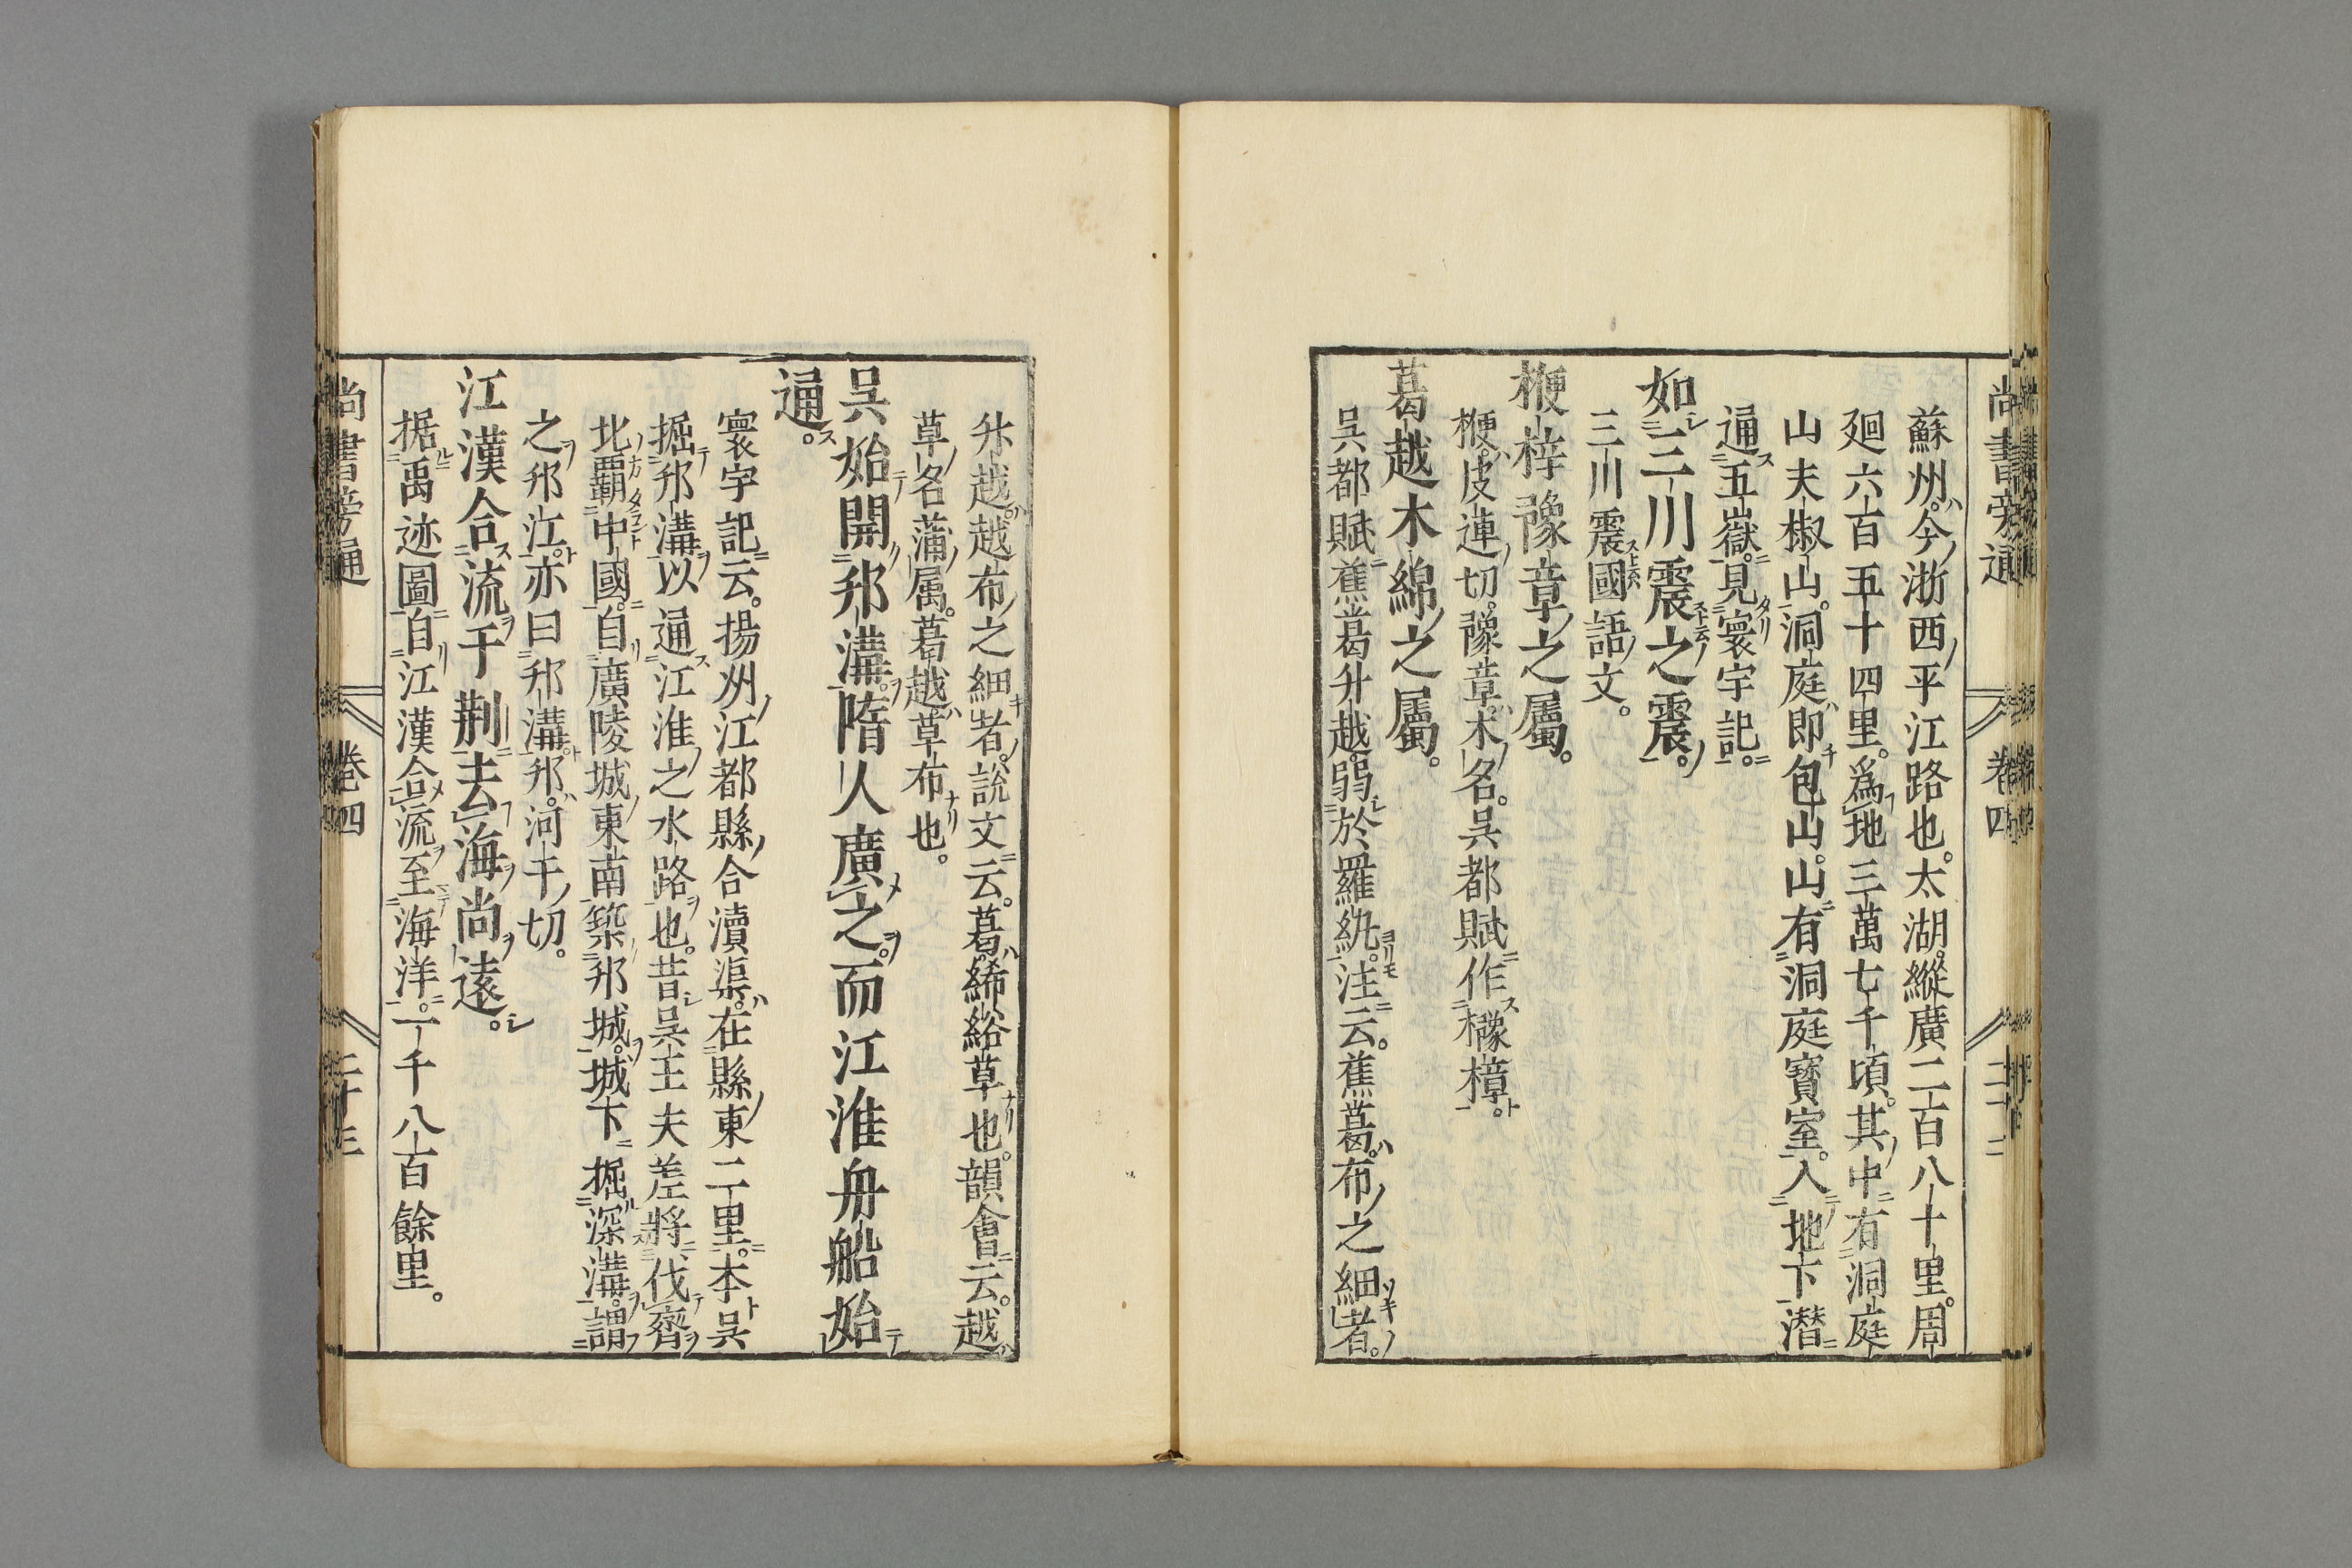 尚書旁通 卷四 二十二
蘇州。今浙西平江路也。太湖。縱廣二百八十里。周
廻六百五十四里。爲地三萬七千頃。其中有洞庭
山夫椒山。洞庭即包山。山有洞庭寶室。入地下潜
通五嶽。見寰宇記。
如三川震之震。
三川震國語文。
楩梓豫章之屬。
楩。皮連切。豫章。木名。呉都賦作櫲樟。
葛越木綿之屬。
呉都賦蕉葛升越。弱於羅紈。注云。蕉葛。布之細者。
升越。越布之細者。説文云。葛。絺綌草也。韻會云。越
草名蒲属。葛越。草布也。
呉始開邗溝。隋人廣之。而江淮舟船始
通。
寰宇記云。揚州江都縣合瀆渠。在縣東二里。本呉
掘邗溝以通江淮之水路也。昔呉王夫差將伐齊
北覇中國。自廣陵城東南築邗城。城下掘深溝。謂
之邗江。亦曰邗溝。邗。河干切。
江漢合流于荆去海尚遠。
据禹迹圖自江漢合流至海洋。一千八百餘里。
尚書旁通 卷四 二十三